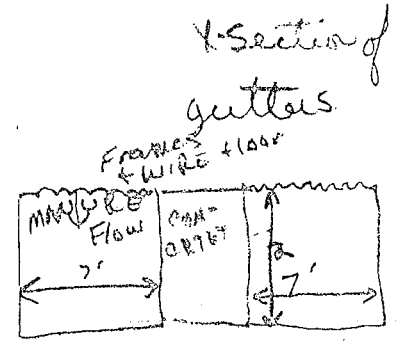 X-Section of
gutters
Frames
+ WIRE floor
MANURE
Flow
CON-
CRETE
7'
2'
7'